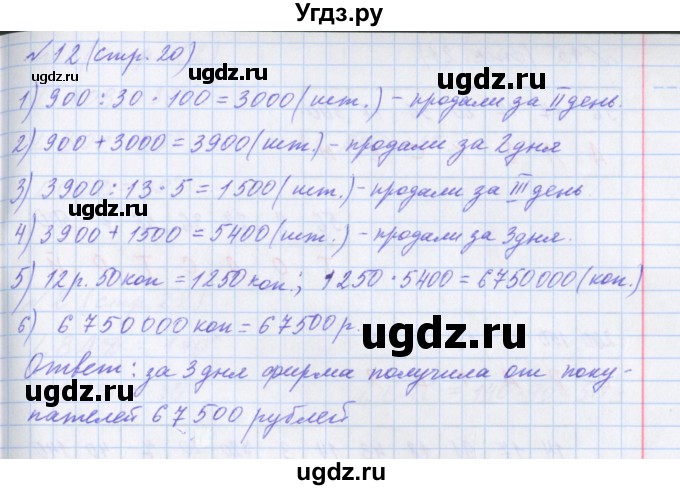 Угдз.ру
№12 (стр. 20)
1) 900 : 30 · 100 = 3000 (шт.) - продали за II день.
2) 900 + 3000 = 3900 (шт.) - продали за 2 дня
3) 3900 : 13 · 5 = 1500 (шт.) - продали за III день
4) 3900 + 1500 = 5400 (шт.) - продали за 3 дня.
5) 12 р. 50 коп = 1250 коп.; 1250 · 5400 = 6750000 (коп.)
6) 6 750 000 коп = 67500 р.
Ответ: за 3 дня фирма получила от поку-
пателей 67 500 рублей
ugdz.ru
ugdz.ru
ugdz.ru
ugdz.ru
ugdz.ru
ugdz.ru
ugdz.ru